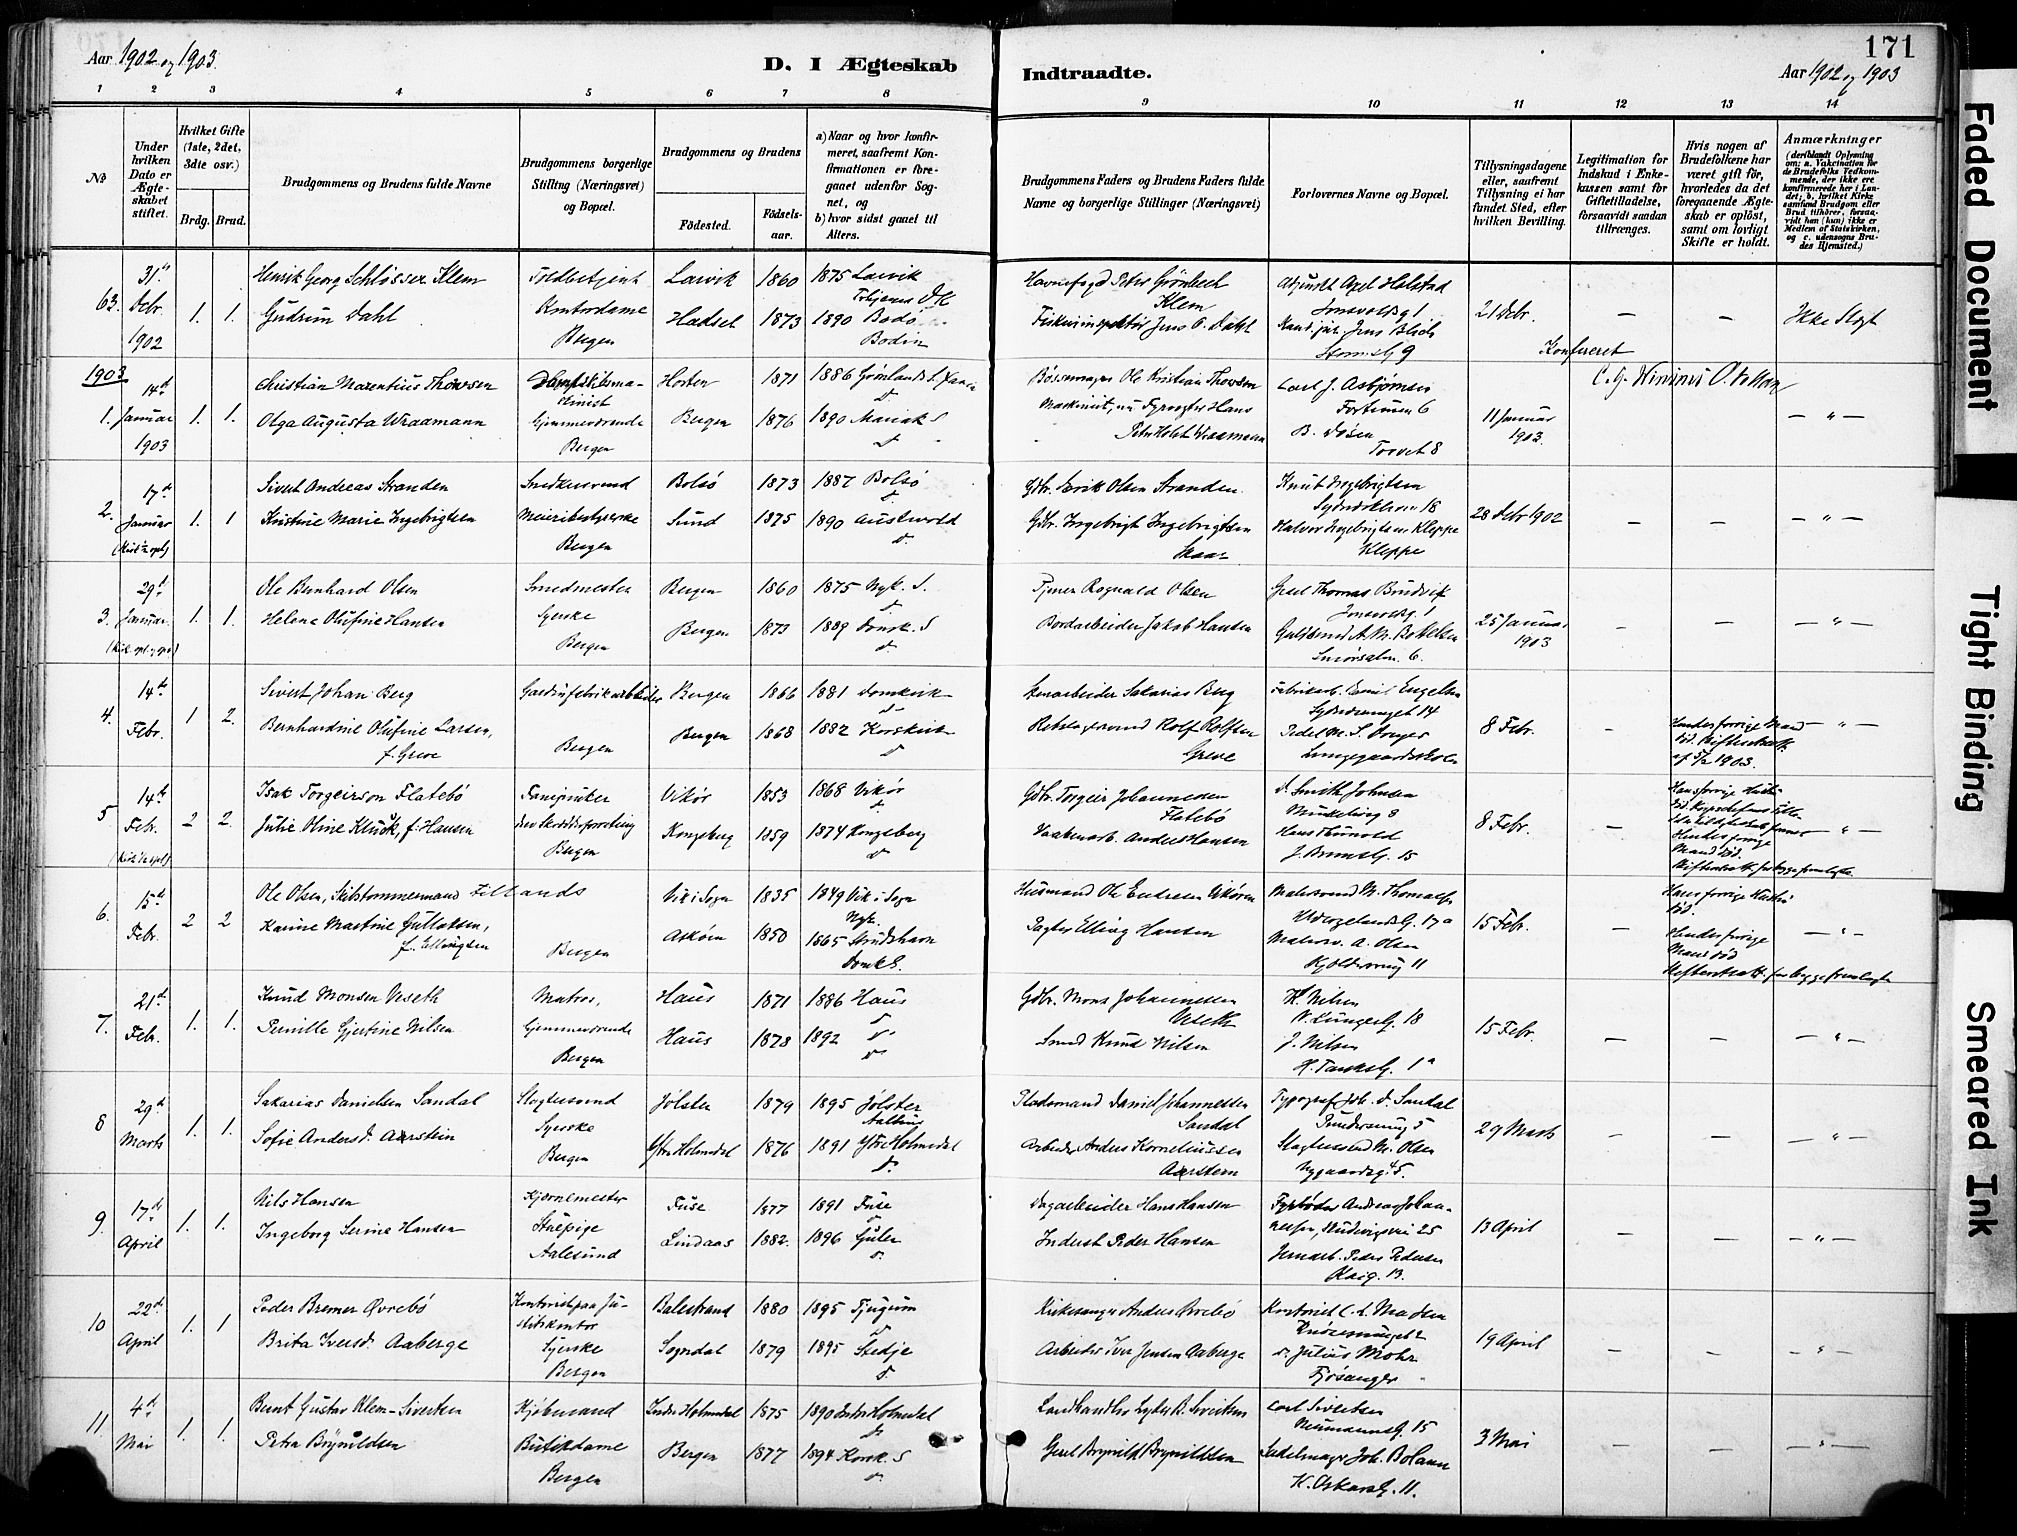 Aar 1902 og 1903.
D. I Ægteskab
Indtraadte.
171
Aar 1902 og 1903
1 2 3 4 5 6 7 8 9 10 11 12 13 14
No
Under hvilken Dato er Ægteskabet stiftet.
Hvilket Gifte (1ste, 2det, 3die osv.)
Brdg. Brud.
Brudgommens og Brudens fulde Navne
Brudgommens borgerlige Stilling (Næringsvei) og Bopæl.
Brudgommens og Brudens
Fødested.
Fødselsaar.
a) Naar og hvor konfirmeret, saafremt Konfirmationen er foregaaet udenfor Sognet, og
b) hvor sidst gaaet til Alters.
Brudgommens Faders og Brudens Faders fulde Navne og borgerlige Stillinger (Næringsvei)
Forlovernes Navne og Bopæl.
Tillysningsdagene eller, saafremt Tillysning ei har fundet Sted, efter hvilken Bevilling.
Legitimation for Indskud i Enkekassen samt for Giftetilladelse, forsaavidt saadan tiltrænges.
Hvis nogen af Brudefolkene har været gift før, hvorledes da det foregaaende Ægteskab er opløst, samt om lovligt Skifte er holdt.
Anmærkninger
(deriblandt Oplysning om: a. Vakcination for de Brudefolks Vedkommende, der ikke ere konfirmerede her i Landet; b. hvilket Kirkesamfund Brudgom eller Brud tilhører, forsaavidt han (hun) ikke er Medlem af Statskirken, og c. udensogns Brudes Hjemsted.)
63. 31te Debr. 1902 1. 1.
Henrik Georg Schlösser Klem
Gudrun Dahl
Kontordame
Bergen
Larvik 1860 1875 Larvik
Hadsel 1873 1890 Bodø
Bodin
Havnefoged Peter Grønbech Klem
Fiskeriinspektør Jens O. Dahl
Adjunkt Axel Holstad
Jonsvoldsg 1
Kand. jur. Jens Blich
Stormsg 9
21 Debr. — — Ikke Slægt
Konfereret
1903
1. 14de Januar 1903 1. 1.
Christian Maxentius Thowsen
Olga Augusta Wraamann
Dampskibsmaskinist
Hjemmeværende
Bergen
Horten 1871 1886
Bergen 1876 1890 Mariak
Bøssemager Ole Kristian Thowsen
Maskinist, nu Fyrvogter Hans
Peter Holst Wraamann
Carl J. Asbjørnsen
Fortunen 6
B. Døsen
Torvet 8
11 Januar 1903. — " —
2. 17de Januar 1. 1
Sivert Andreas Stranden
Kristine Marie Ingebrigtsen
Snedkersvend
Meieribestyrerske
Bergen
Bolsø 1873 1887 Bolsø
Sund 1875 1890 Austevold
Gdbr. Erik Olsen Stranden
Gdbr. Ingebrigt Ingebrigtsen
Skaar
Knut Ingebrigtsen
18
Halvor Ingebrigtsen Kleppe
Kleppe
28 Debr 1902 — — — " —
3. 29de Januar 1. 1.
Ole Bernhard Olsen
Helene Olufine Hansen
Smedmester
Syerske
Bergen
Bergen 1860 1875 Nyk. S.
Bergen 1873 1889 Domk. S
Tjener Rognald Olsen
Bordarbeider Jakob Hansen
Jonsvoldsg. 1
25 Januar 1903 — — — " —
4. 14de Febr. 1 2.
Sivert Johan Berg
Bernhardine Olufine Larsen,
f. Greve
Bergen
Bergen 1866 1881 Domkirk
Bergen 1868 1882 Korskirk
Sakarias Berg
Rebslagersvend Rolf Rolfsen
Greve
Fabrikarb. Emil Engelsen
14
Pedel M. S.
8 Febr. — — " —
Hendes forrige Mand
død. Skifteattest
af 5/2 1903.
5 14de Febr. 2 2.
Isak Torgeirson Flatebø
Julie Oline Kluck, f. Hansen
Bergen
Vikør 1853 1868 Vikør
Kongsberg 1859 1874 Kongsberg
Gdbr. Torgeir Johannesen
Flatebø
Vaabenarb. Anders Hansen
D. Smith Johnsen
8
Hans Thunold
J. Brunsg. 15
8 Febr. — — " —
Hans forrige Hustru
død.
Hendes forrige
Mand død.
6. 15de Febr. 2 2
Ole Olsen, Skibstømmermand tillands
Karine Martine Gullaksen,
f. Ellingsen
Bergen
Vik i Sogn 1835 1849 Vik i Sogn
Nyk.
Askøen 1850 1865 Strudshavn
Domk S.
Husmand Ole Endresen Vikøren
Pagter Elling Hansen
Malersvend M. Thomasen
Wergelandsg. 17a
Malersv. A. Olsen
11
15 Febr. — — " —
Hans forrige Hustru
død.
Hendes forrige
Mand død
Skifteattest for begge fremlagte
7. 21de Febr. 1. 1.
Knud Monsen Veseth
Pernille Gjertine Nilsen
Matros,
Hjemmeværende
Bergen
Haus 1871 1886 Haus
Haus 1878 1892
Gdbr. Mons Johannessen
Veseth
Smed Knud Nilsen
H. Nilsen
18
J. Nilsen
H. Tanksg. 1a
15 Febr. — — — " —
8 29de Marts 1. 1.
Sakarias Danielsen Sandal
Sofie Andersd. Aarstein
Slagtersvend
Syerske
Bergen
Jølster 1879 1895 Jølster
Ytre Holmedal 1876 1891 Ytre Holmedal
Pladsmand Daniel Johannessen
Sandal
Arbeider Anders Korneliussen
Aarstein
Typograf Joh. D. Sandal
5
Slagtersvend M. Olsen
Nygaardsg. 45.
29 Marts — — — " —
9. 17de April 1. 1.
Nils Hansen
Ingeborg Serine Hansen
Stuepige
Aalesund
Fuse 1877 1891 Fuse
Lindaas 1882. 1896
Dagarbeider Hans Hansen
Inderst Peder Hansen
Fyrbøder Andreas Johannessen, 25
Jernarb. Peder Pedersen
13.
13 April — — — " —
10 22de April 1. 1
Peder Bremer Øvrebø
Brita Iversd. Aaberge
Kontorist paa Justitskontor
Syerske
Bergen
Balestrand 1880 1895 Tjugum
Sogndal 1879 1895 Stedje
Kirkesanger Anders Øvrebø
Arbeider Iver Jensen Aaberge
Kontorist C. L. Madsen
Julius Mohr
Fjøsanger
19 April — — — " —
11. 4de Mai 1. 1.
Bernt Gustav Klem-Sivertsen
Petra Brynildsen
Kjøbmand
Butikdame
Bergen
Indre Holmedal 1875 1890 Indre Holmedal
Bergen 1877 1894 Korsk. S
Landhandler Lyder B. Sivertsen
Gsel Brynild Brynildsen
Carl Sivertsen
Neumannsg. 15
Sadelmager Joh. Bolann
K. Oskarsg. 11.
3 Mai — — — " —
Faded Document
Tight Binding
Smeared Ink